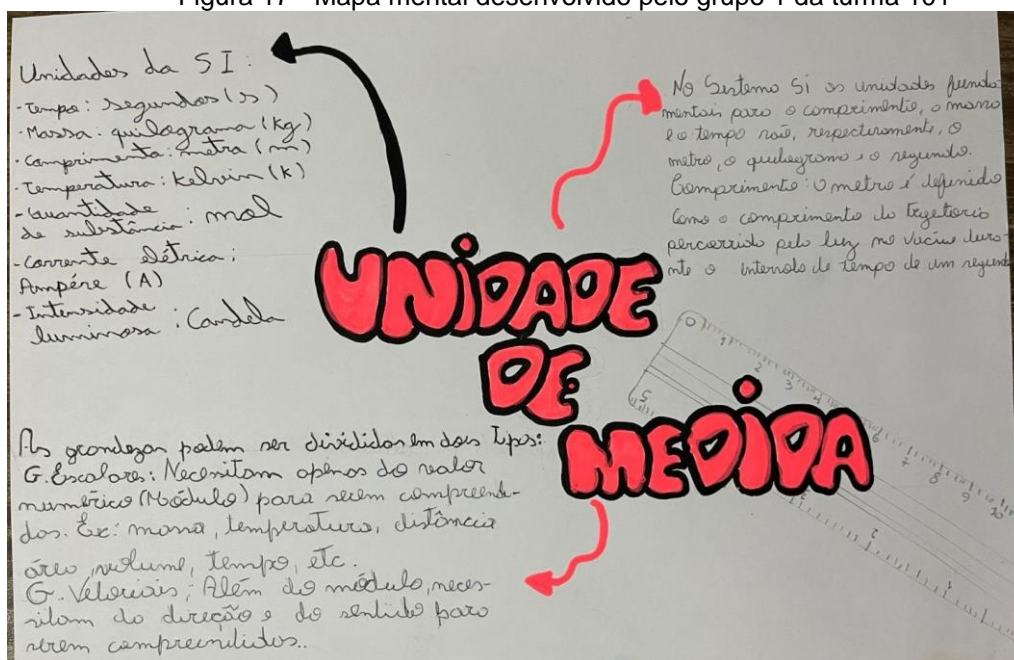 Figura 17 - Mapa mental desenvolvido pelo grupo 1 da turma 101
Unidades da SI:
- Tempo: segundos (s)
- Massa: quilograma (kg)
- Comprimento: metro (m)
- Temperatura: Kelvin (k)
- Quantidade
de substância: mol
- Corrente elétrica:
Ampére (A)
- Intensidade
luminosa: Candela
No Sistema Si as unidades funda-
mentais para o comprimento, a massa
e o tempo são, respectivamente, o
metro, o quilograma e o segundo.
Comprimento: O metro é definido
Como o comprimento da trajetoria
percorrido pela luz no vácuo dura-
nte o intervalo de tempo de um segundo
UNIDADE
DE
MEDIDA
As grandezas podem ser divididas em dois tipos:
G. Escalares: Necessitam apenas do valor
numérico (Módulo) para serem compreendi-
das. Ex: massa, temperatura, distância
área, volume, tempo, etc.
G. Vetoriais; Além do módulo, neces-
sitam da direção e do sentido para
serem compreendidos..
0 1 2 3 4 6 7 8 9 10
5 3 2 1